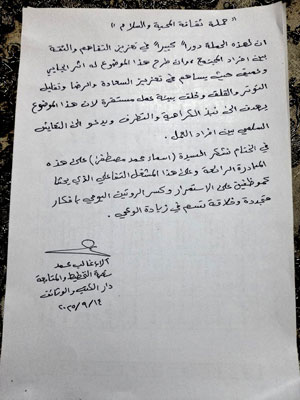 " حملة ثقافة المحبة والسلام "
ان لهذه الحملة دورة كبيرة في تعزيز التفاهم والثقة
بين افراد المجتمع ، وان طرح هذا الموضوع له اثر ايجابي
وعميق حيث يساهم في تعزيز السعادة والرضا وتقليل
التوتر والقلق وخلق بيئة عمل مستقرة لان هذا الموضوع
يهدف الى نبذ الكراهية والتطرف ويدعو الى التعايش
السلمي بين افراد العمل .
في الختام نشكر السيدة (اسماء محمد مصطفى) على هذه
المبادرة الرائعة وعلى هذا المشغل التفاعلي الذي يحثنا
كموظفين على الاستمرار وكسر الروتين اليومي بأفكار
جديدة وخلاقة تسهم في زيادة الوعي .
آلاء غالب محمد
شعبة التخطيط والمتابعة
دار الكتب والوثائق
٢٠٢٥/٩/١٤